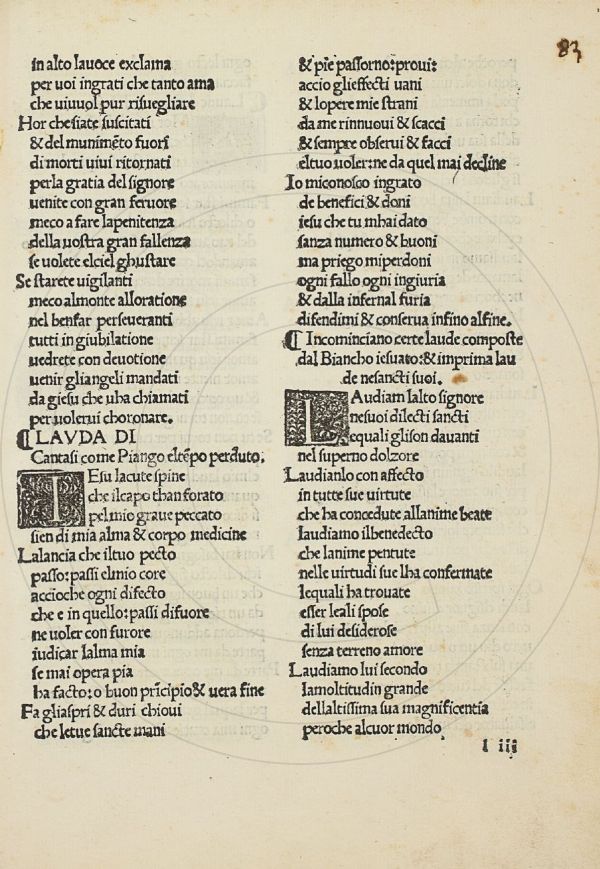 83
in alto lauoce exclama
per uoi ingrati che tanto ama
che uiuuol pur risuegliare
Hor che siate suscitati
& del munimẽto fuori
di morti uiui ritornati
perla gratia del signore
uenite con gran feruore
meco a fare lapenitenza
della uostra gran fallenza
se uolete elciel ghustare
Se starete uigilanti
meco almonte alloratione
nel benfar perseueranti
tutti in giubilatione
uedrete con deuotione
uenir gliangeli mandati
da giesu che uha chiamati
per uolerui choronare.
¶ LAVDA DI
Cantasi come Piango eltẽpo perduto.
IEsu lacute spine
che ilcapo than forato
pelmio graue peccato
sien di mia alma & corpo medicine
Lalancia che iltuo pecto
passo: passi elmio core
accioche ogni difecto
che e in quello: passi difuore
ne uoler con furore
iudicar lalma mia
se mai opera pia
ha facto: o buon prĩcipio & uera fine
Fa gliaspri & duri chioui
che letue sancte mani
& pie passorno: proui:
accio glieffecti uani
& lopere mie strani
da me rinnuoui & scacci
& sempre obserui & facci
eltuo uoler: ne da quel mai decline
Io miconosco ingrato
de benefici & doni
iesu che tu mhai dato
sanza numero & buoni
ma priego miperdoni
ogni fallo ogni ingiuria
& dalla infernal furia
difendimi & conserua infino alfine.
¶ Incominciano certe laude composte
dal Biancho iesuato: & imprima lau
de nesancti suoi.
LAudiam lalto signore
nesuoi dilecti sancti
equali glison dauanti
nel superno dolzore
Laudianlo con affecto
in tutte sue uirtute
che ha concedute allanime beate
laudiamo ilbenedecto
che lanime pentute
nelle uirtudi sue lha confermate
lequali ha trouate
esser leali spose
di lui desiderose
senza terreno amore
Laudiamo lui secondo
lamoltitudin grande
dellaltissima sua magnificentia
peroche alcuor mondo
l iii